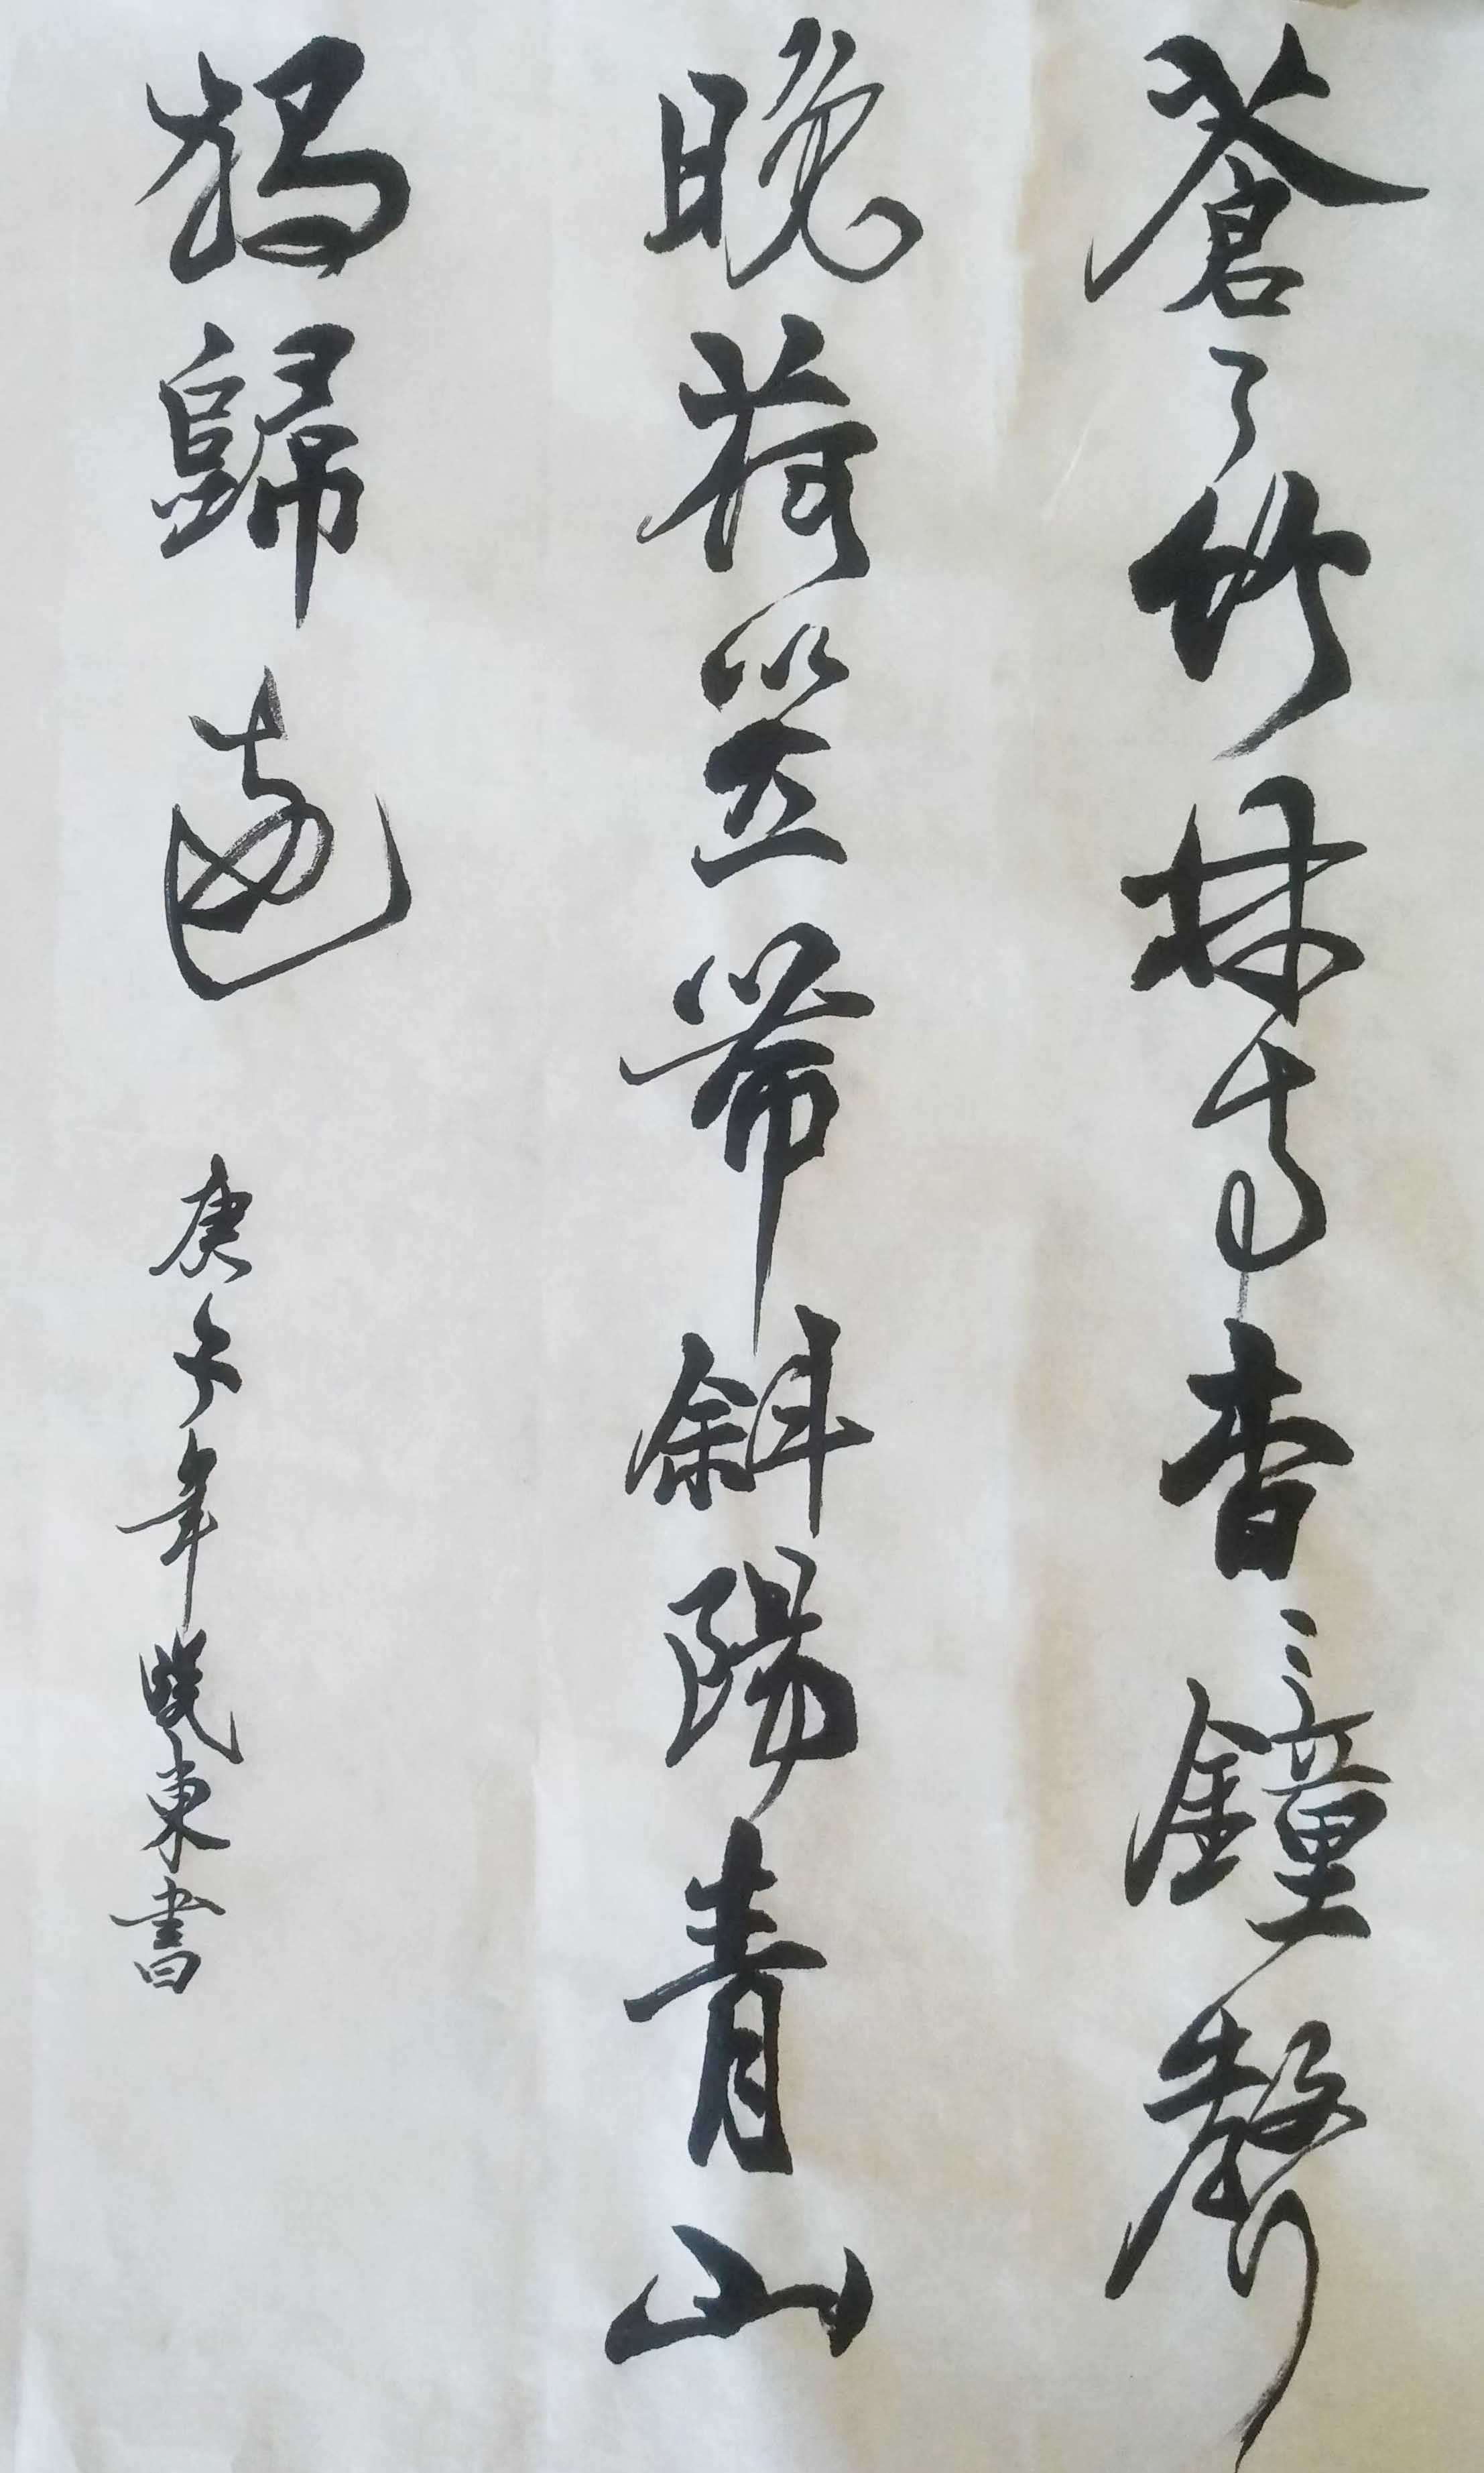 蒼々竹林寺杳々鐘聲
晚荷笠帶斜陽青山
獨歸遠
庚子年曉東書